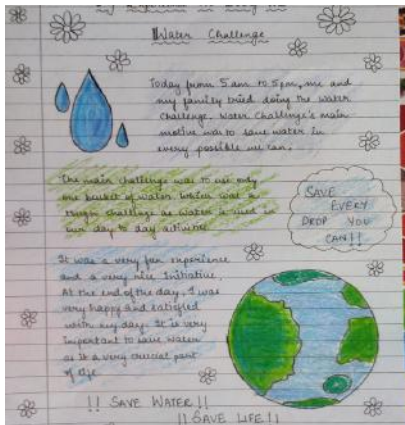 Water Challenge
Today from 5 am to 5pm, me and
my family tried doing the water
challenge. Water Challenge's main
motive was to save water in
every possible we can.
The main challenge was to use only
one bucket of water which was a
tough challenge as water is used in
our day to day activities
SAVE
EVERY
DROP YOU
CAN!!
It was a very fun experience
and a very nice Initiative.
At the end of the day, I was
very happy and satisfied
with my day. It is very
important to save water
as it a very crucial part
of life
!! SAVE WATER!!
!! SAVE LIFE!!